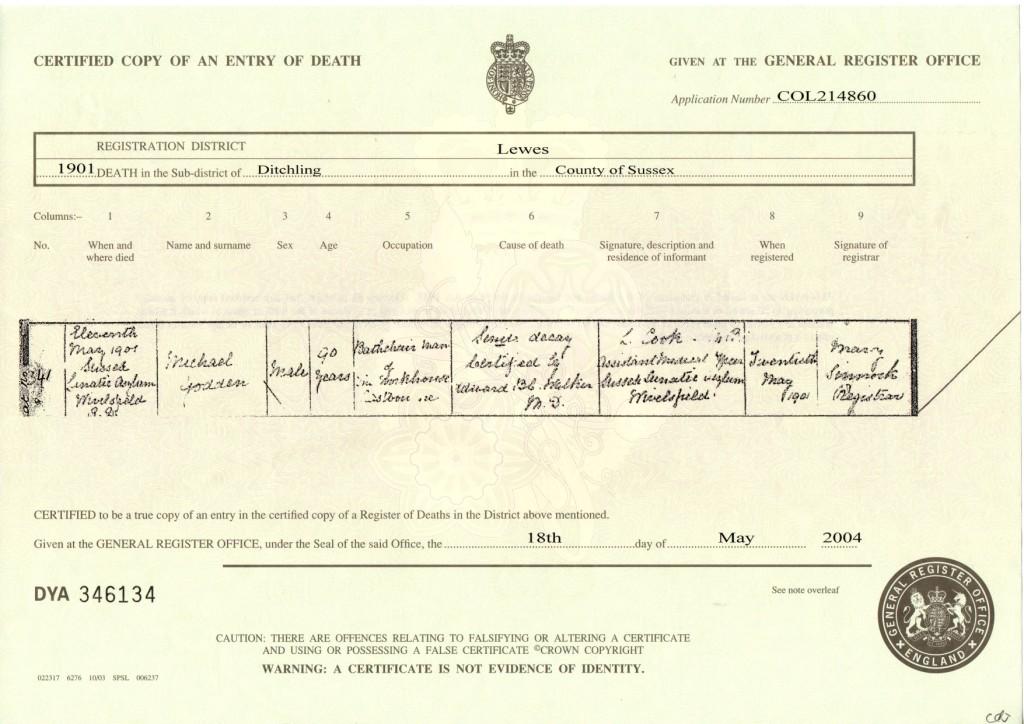 CERTIFIED COPY OF AN ENTRY OF DEATH
GIVEN AT THE GENERAL REGISTER OFFICE
Application Number COL214860
REGISTRATION DISTRICT Lewes
1901 DEATH in the Sub-district of Ditchling in the County of Sussex
Columns:– 1 2 3 4 5 6 7 8 9
No. When and where died Name and surname Sex Age Occupation Cause of death Signature, description and residence of informant When registered Signature of registrar
Eleventh
May 1901
Sussex
Lunatic Asylum
Wivelsfield
Michael
Godden
Male
90
Years
Bathchair man
of
Workhouse
Senile decay
Certified by
Edward B.C. Walker
M.D.
L. Cook
Assistant Medical Officer
Sussex Lunatic Asylum
Wivelsfield
Twentieth
May
1901
Mary
Simmock
Registrar
CERTIFIED to be a true copy of an entry in the certified copy of a Register of Deaths in the District above mentioned.
Given at the GENERAL REGISTER OFFICE, under the Seal of the said Office, the 18th day of May 2004
DYA 346134
See note overleaf
CAUTION: THERE ARE OFFENCES RELATING TO FALSIFYING OR ALTERING A CERTIFICATE
AND USING OR POSSESSING A FALSE CERTIFICATE ©CROWN COPYRIGHT
WARNING: A CERTIFICATE IS NOT EVIDENCE OF IDENTITY.
GENERAL REGISTER OFFICE
ENGLAND
022317 6276 10/03 SPSL 006237